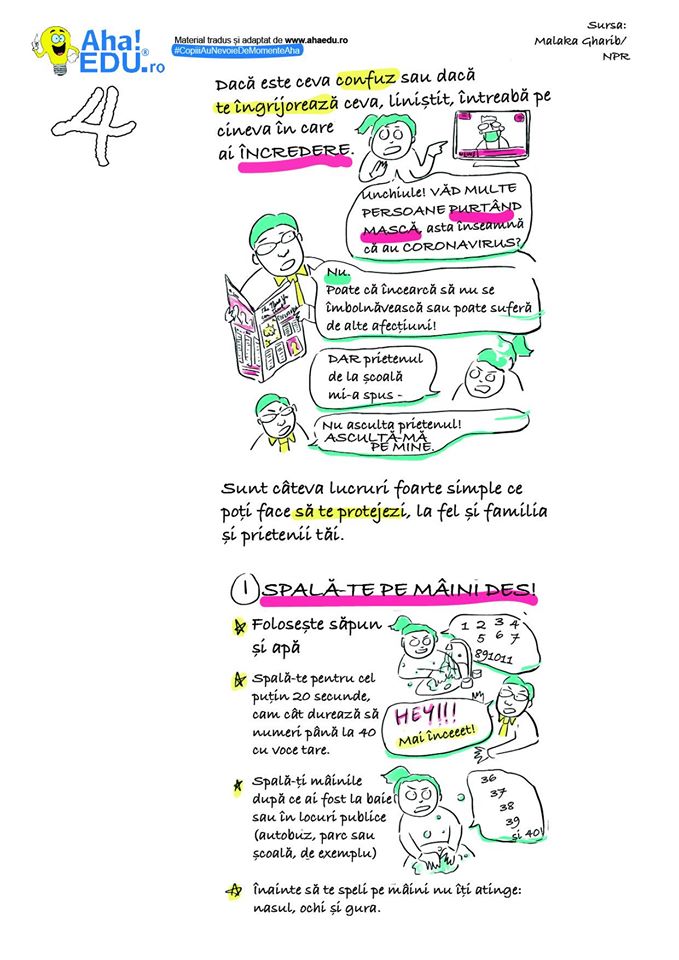 Aha!
EDU.ro
Material tradus și adaptat de www.ahaedu.ro
#CopiiiAuNevoieDeMomenteAha
Sursa:
Malaka Gharib/
NPR
4
Dacă este ceva confuz sau dacă
te îngrijorează ceva, liniștit, întreabă pe
cineva în care
ai ÎNCREDERE.
Unchiule! VĂD MULTE
PERSOANE PURTÂND
MASCĂ, asta înseamnă
că au CORONAVIRUS?
Nu.
Poate că încearcă să nu se
îmbolnăvească sau poate suferă
de alte afecțiuni!
DAR prietenul
de la școală
mi-a spus -
Nu asculta prietenul!
ASCULTĂ-MĂ
PE MINE.
Sunt câteva lucruri foarte simple ce
poți face să te protejezi, la fel și familia
și prietenii tăi.
1 SPALĂ-TE PE MÂINI DES!
Folosește săpun
și apă
1 2 3 4
5 6 7
891011
Spală-te pentru cel
puțin 20 secunde,
cam cât durează să
numeri până la 40
cu voce tare.
HEY!!!
Mai înceeet!
Spală-ți mâinile
după ce ai fost la baie
sau în locuri publice
(autobuz, parc sau
școală, de exemplu)
36
37
38
39
și 40!
Înainte să te speli pe mâini nu îți atinge:
nasul, ochi și gura.